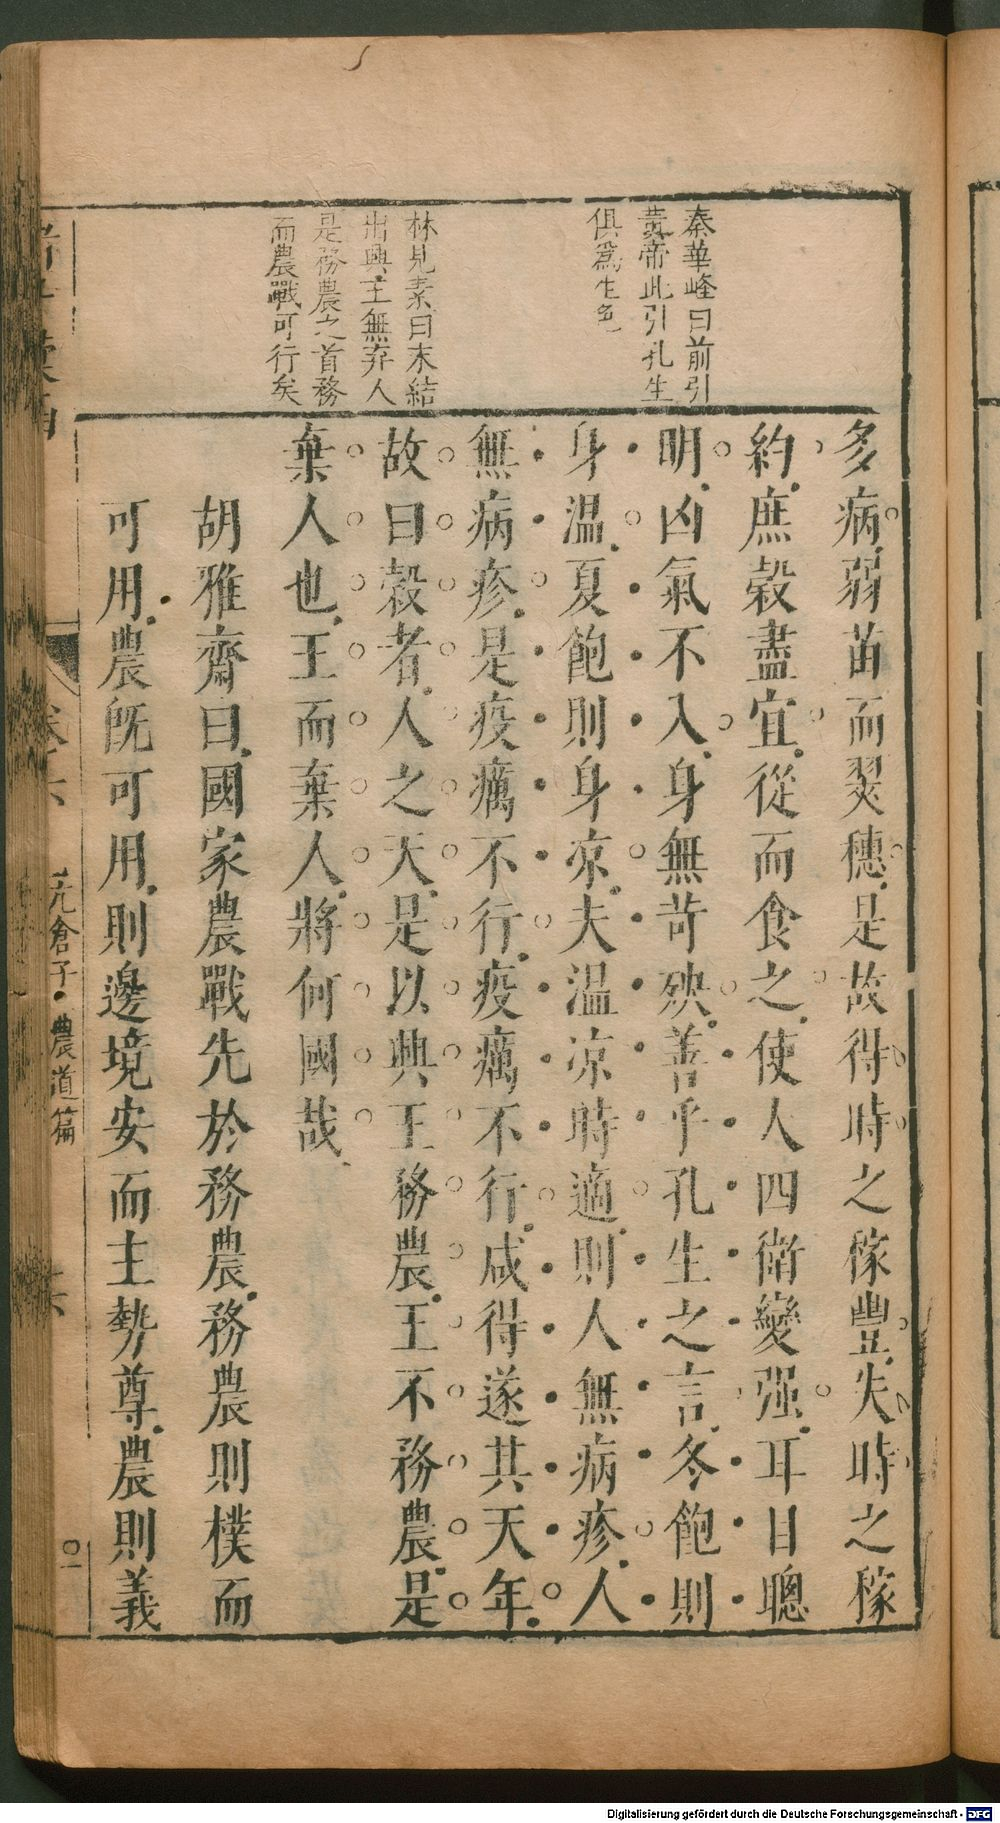 秦華峰曰前引
黃帝此引孔生
俱爲生色
林見素曰末結
出興王無弃人
是務農之首務
而農戰可行矣
多病弱苗而翜穗是故得時之稼豐失時之稼
約庶穀盡宜從而食之使人四衛變强耳目聰
明凶氣不入身無苛殃善乎孔生之言冬飽則
身溫夏飽則身凉夫溫凉時適則人無病疹人
無病疹是疫癘不行疫癘不行咸得遂其天年
故曰穀者人之天是以興王務農王不務農是
棄人也王而棄人將何國哉
胡雅齋曰國家農戰先於務農務農則樸而
可用農旣可用則邊境安而主勢尊農則義
亢倉子·農道篇
Digitalisierung gefördert durch die Deutsche Forschungsgemeinschaft - DFG